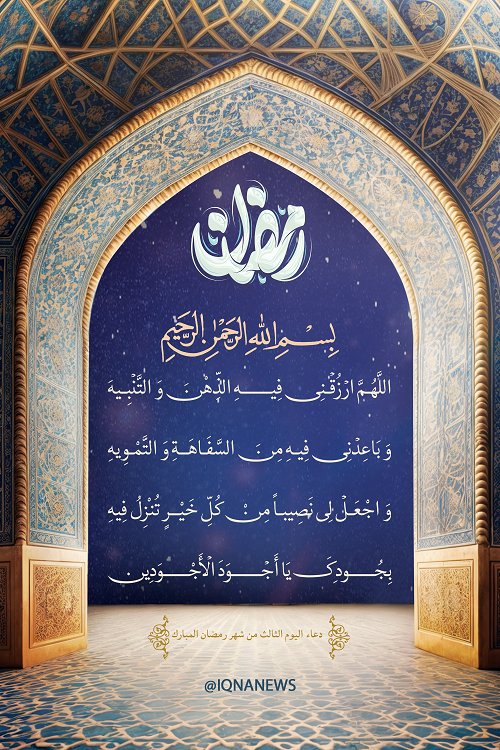 رمضان
بِسْمِ اللهِ الرَّحْمٰنِ الرَّحِيْمِ
اللَّهُمَّ ارْزُقْنِی فِیهِ الذِّهْنَ وَ التَّنْبِیهَ
وَ بَاعِدْنِی فِیهِ مِنَ السَّفَاهَةِ وَ التَّمْوِیهِ
وَ اجْعَلْ لِی نَصِیباً مِنْ کُلِّ خَیْرٍ تُنْزِلُ فِیهِ
بِجُودِکَ یَا أَجْوَدَ الْأَجْوَدِینَ
دعاء اليوم الثالث من شهر رمضان المبارك
@IQNANEWS